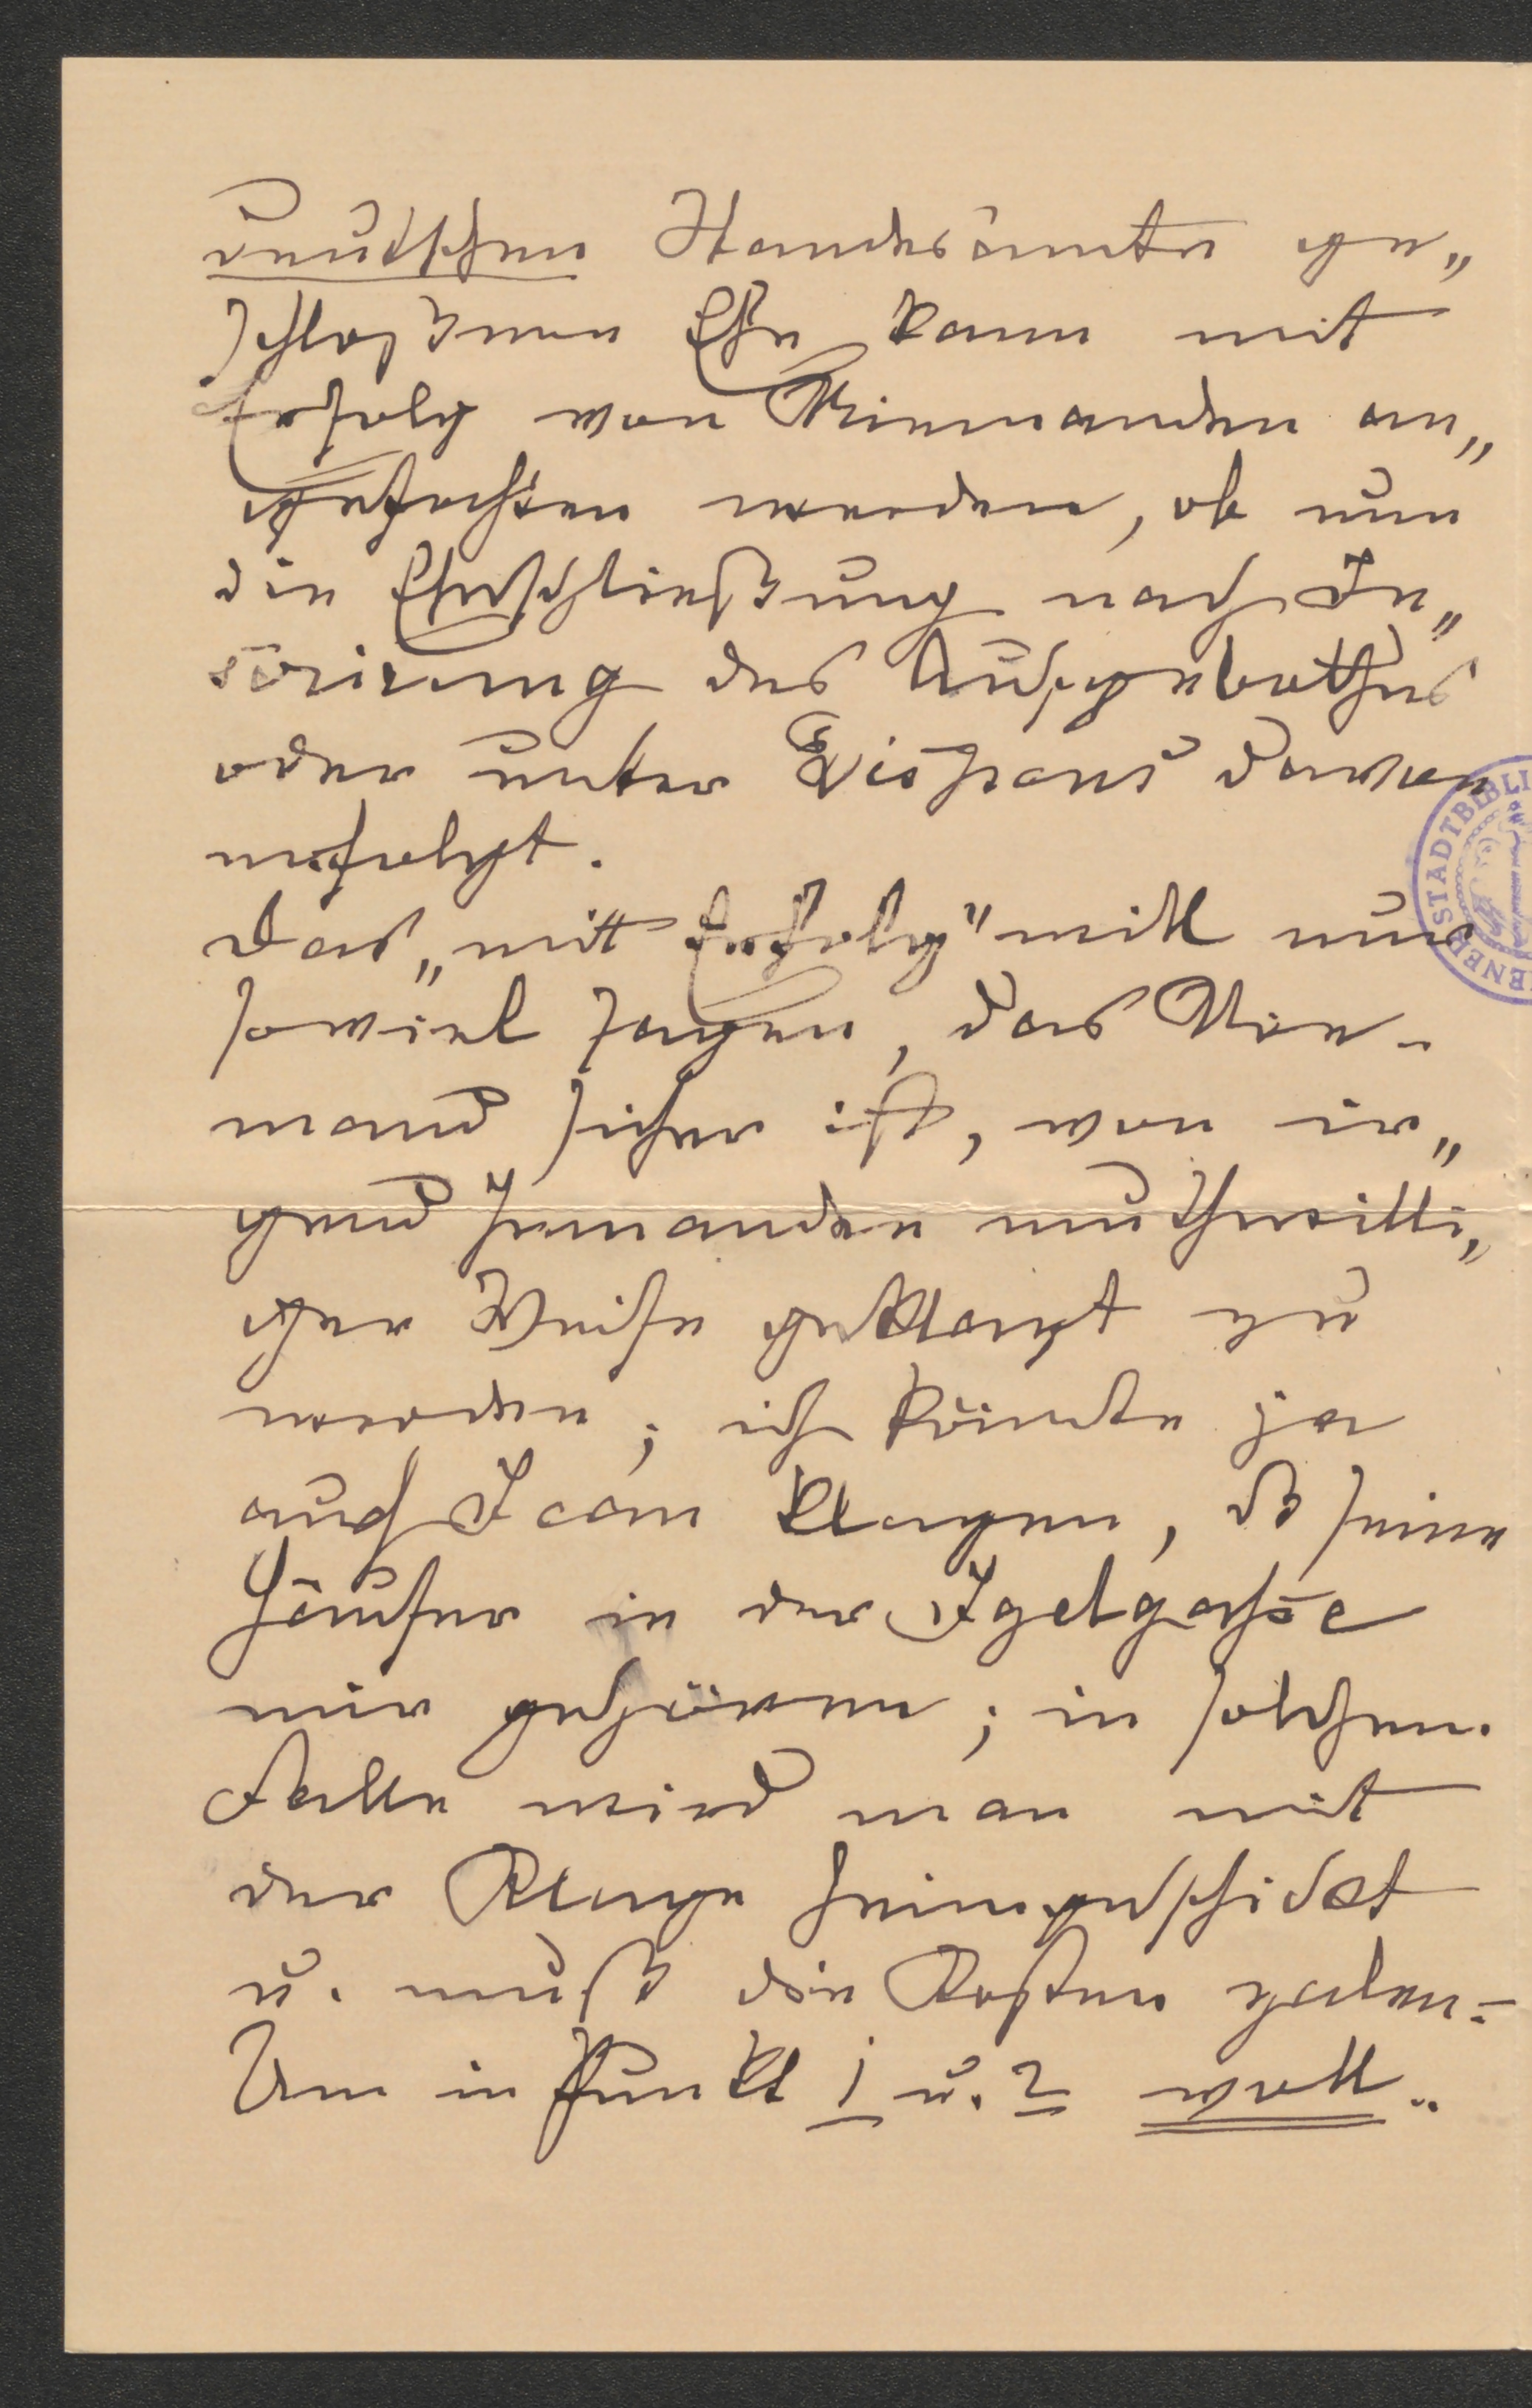 deutschen Standesamte ge„
schloßenen Ehe kann mit
Erfolg von Niemanden an„
gefochten werden, ob nun
die Eheschließung nach In„
serirung des Aufgebothes
oder unter Dispens davon
erfolgt.
Das „mit Erfolg" will nur
soviel sagen, das Nie-
mand sicher ist, von ir„
gend Jemanden muthwilli„
ger Weise geklagt zu
werden; ich könnte ja
auch Jean klagen, dß seine
Häuser in der Igelgasse
mir gehören; in solchem
Falle wird man mit
der Klage heimgeschickt
u. muß die Kosten zalen.-
Um in Punkt 1 u. 2 voll-
STADTBIBLI